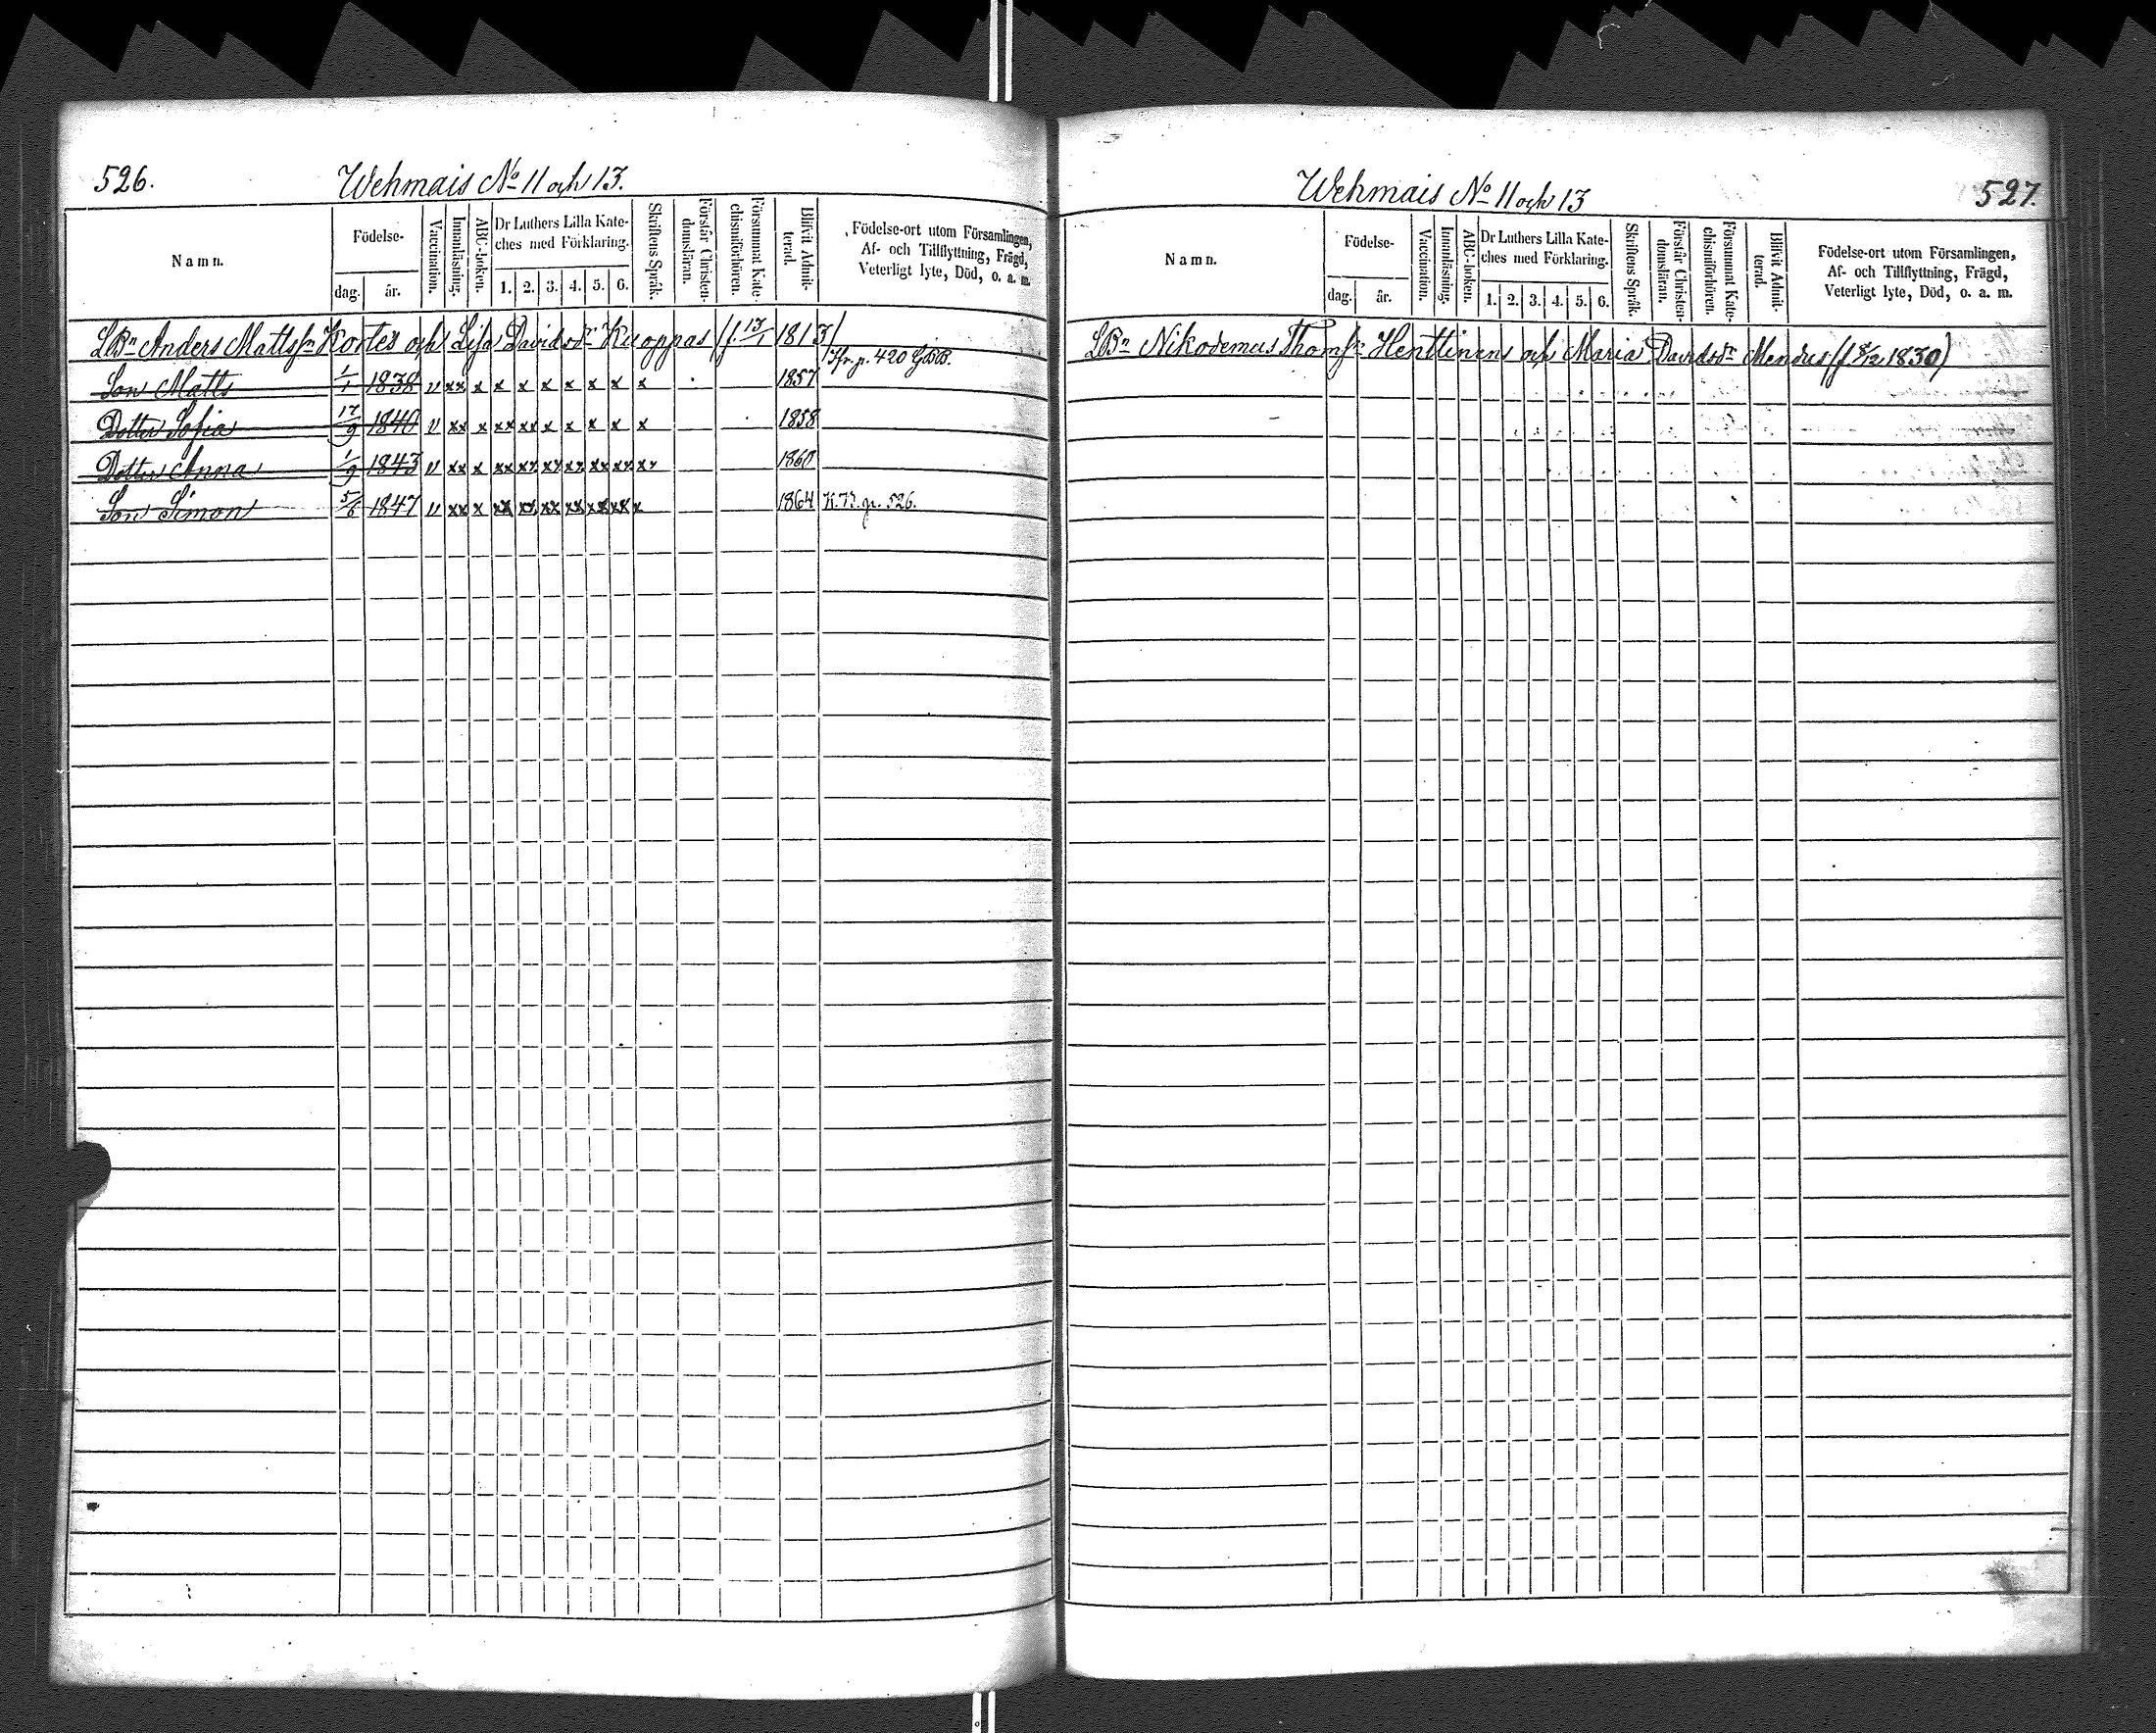 526.
Wehmais No 11 och 13.
Namn.
Födelse-
dag.
år.
Vaccination.
Innanläsning.
ABC-boken.
Dr Luthers Lilla Kate-
ches med Förklaring.
1. 2. 3. 4. 5. 6.
Skriftens Språk.
Förstår Christen-
domsläran.
Försummat Kate-
chismiförhören.
Blifvit Admit-
terad.
Födelse-ort utom Församlingen,
Af- och Tillflyttning, Frägd,
Veterligt lyte, Död, o. a. m.
LBn Anders Mattsſn Kortes och Lisa Davidsdr Kuoppas (f. 13/1 1813)
Jfr. p. 420 GBB.
Son Matts 1/1 1838 v xx x x x x x x x x 1857
Dotter Sofia 17/9 1840 v xx x xx xx x x x x x 1858
Dotter Anna 1/9 1843 v xx x xx xx xx xx xx xx xx 1860
Son Simon 5/6 1847 v xx x xx xx xx xx xx xx x 1864 K.B. p. 526.
Wehmais No 11 och 13
527.
Namn.
Födelse-
dag.
år.
Vaccination.
Innanläsning.
ABC-boken.
Dr Luthers Lilla Kate-
ches med Förklaring.
1. 2. 3. 4. 5. 6.
Skriftens Språk.
Förstår Christen-
domsläran.
Försummat Kate-
chismiförhören.
Blifvit Admit-
terad.
Födelse-ort utom Församlingen,
Af- och Tillflyttning, Frägd,
Veterligt lyte, Död, o. a. m.
LBn Nikodemus Thomſsn Henttinens och Maria Davidsdr Mendus (f. 8/12 1830)